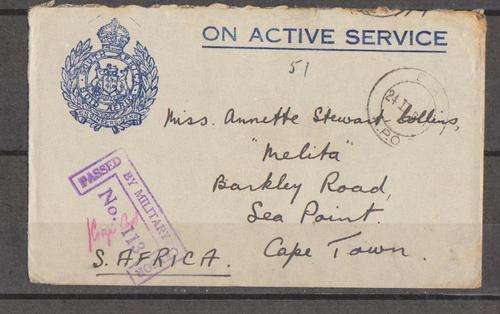 ON ACTIVE SERVICE
51
24 I
P.O
Miss. Annette Stewart-Collins,
"Melita"
Barkley Road,
Sea Point.
Cape Town.
S. AFRICA.
PASSED BY MILITARY
No. 113